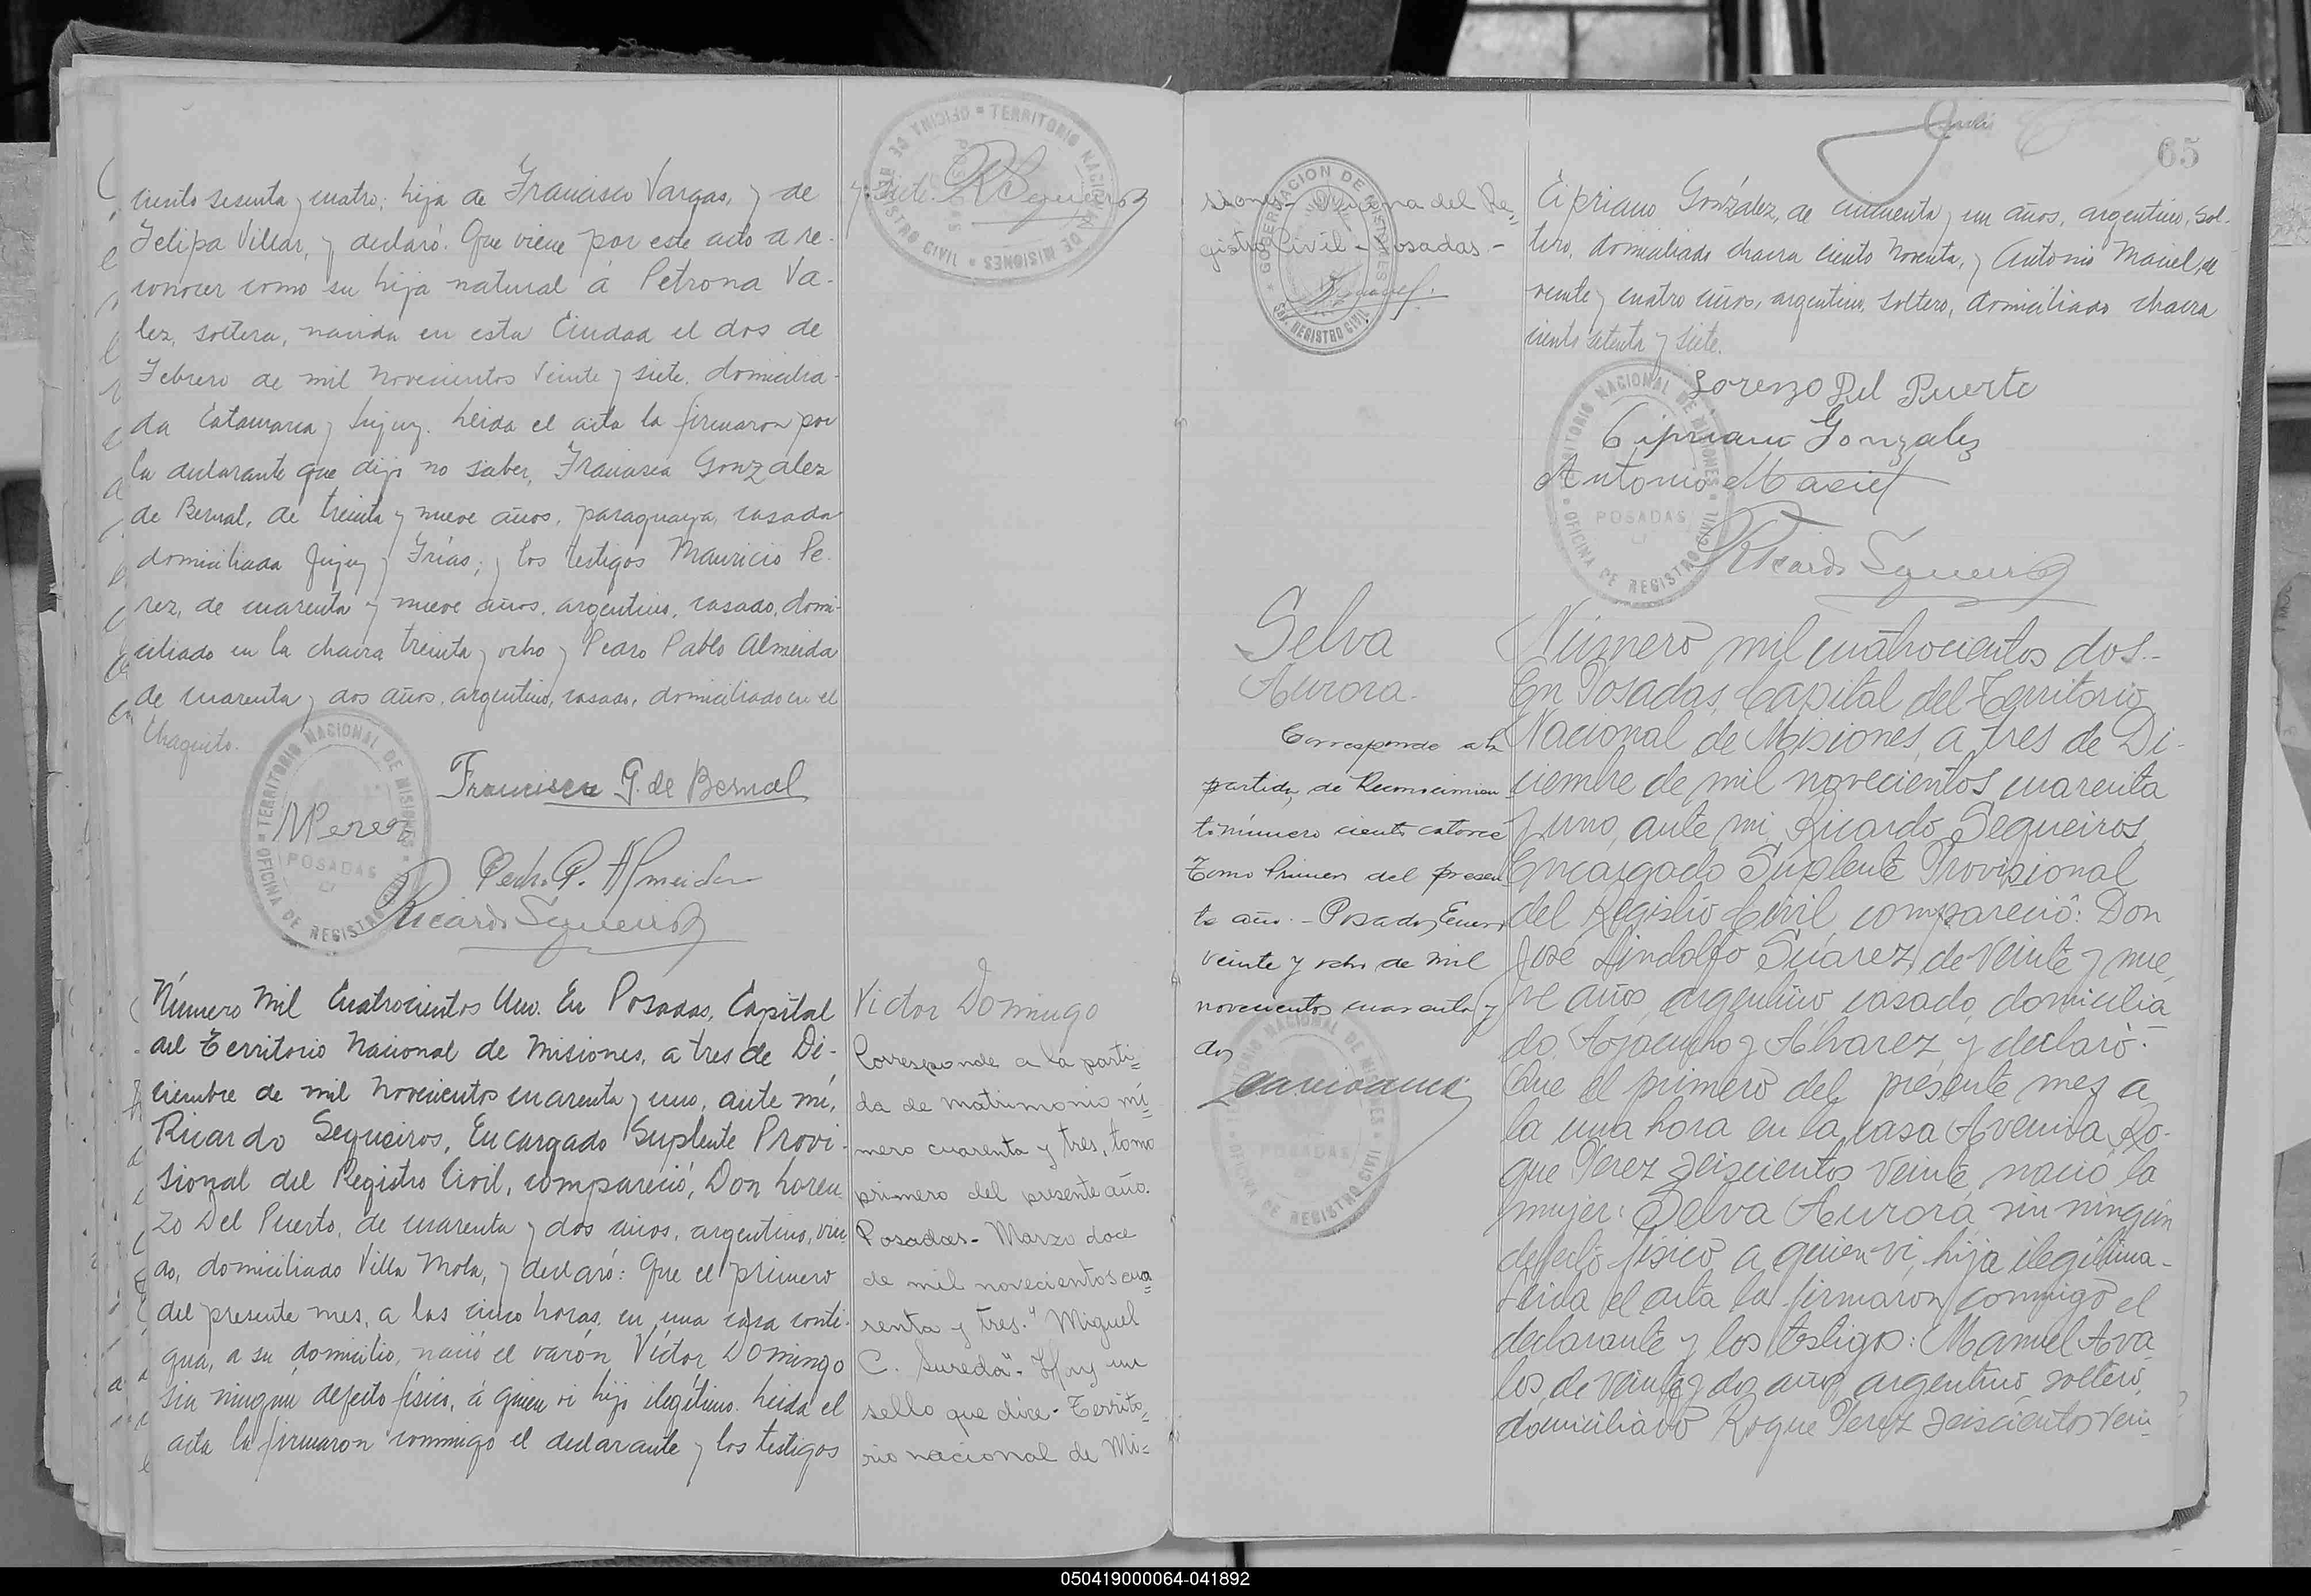 ciento sesenta y cuatro; hija de Francisco Vargas, y de
Felipa Villar, y declaró: Que viene por este acto a re-
conocer como su hija natural á Petrona Va-
lez, soltera, nacida en esta Ciudad el dos de
Febrero de mil novecientos veinte y siete, domicilia-
da Catamarca y Jujuy. Leida el acta la firmaron por
la declarante que dijo no saber, Francisca Gonzalez
de Bernal, de treinta y nueve años, paraguaya, casada
domiciliada Jujuy y Frías; y los testigos Mauricio Pe-
rez, de cuarenta y nueve años, argentino, casado, domi-
ciliado en la chacra treinta y ocho y Pedro Pablo Almeida
de cuarenta y dos años, argentino, casado, domiciliado en el
Chaquito.
Francisca G. de Bernal
MPerez
Pedro P. Almeida
Ricardo Sequeiros
TERRITORIO NACIONAL DE MISIONES
POSADAS
OFICINA DE REGISTRO CIVIL
Número Mil Cuatrocientos Uno. En Posadas, Capital
del Territorio Nacional de Misiones, a tres de Di-
ciembre de mil novecientos cuarenta y uno, ante mí,
Ricardo Sequeiros, Encargado Suplente Provi-
sional del Registro Civil, compareció, Don Loren
zo Del Puerto, de cuarenta y dos años, argentino, viu
do, domiciliado Villa Mola, y declaró: Que el primero
del presente mes, a las cinco horas, en una casa conti-
gua, a su domicilio, nació el varón Víctor Domingo
sin ningún defecto físico, á quien vi hijo ilegítimo. Leida el
acta la firmaron conmigo el declarante y los testigos
y siete. RSequeiros
TERRITORIO NACIONAL DE MISIONES
POSADAS
OFICINA DE REGISTRO CIVIL
Victor Domingo
Corresponde a la parti=
da de matrimonio nú=
mero cuarenta y tres, tomo
primero del presente año.
Posadas - Marzo doce
de mil novecientos cua=
renta y tres." Miguel
C. Sureda". Hay un
sello que dice - Territo=
rio nacional de Mi=
siones - Oficina del Re=
gistro Civil - Posadas -
GOBERNACION DE MISIONES
REGISTRO CIVIL
65
Cipriano González, de cincuenta y un años, argentino, sol-
tero, domiciliado chacra ciento noventa, y Antonio Maciel, de
veinte y cuatro años, argentino, soltero, domiciliado chacra
ciento setenta y siete.
Lorenzo Del Puerto
Cipriano Gonzalez
Antonio Maciel
Ricardo Sequeiros
TERRITORIO NACIONAL DE MISIONES
POSADAS
OFICINA DE REGISTRO CIVIL
Selva
Aurora.
Corresponde a la
partida de Reconocimien
to número ciento catorce
Tomo Primero del presen
te año. - Posadas, Enero
veinte y ocho de mil
novecientos cuarenta y
dos
TERRITORIO NACIONAL DE MISIONES
POSADAS
OFICINA DE REGISTRO CIVIL
Número mil cuatrocientos dos.-
En Posadas, Capital del Territorio
Nacional de Misiones, a tres de Di-
ciembre de mil novecientos cuarenta
y uno, ante mi, Ricardo Sequeiros,
Encargado Suplente Provisional
del Registro Civil, compareció: Don
José Lindolfo Suárez, de veinte y nue
ve años, argentino, casado, domicilia
do Ayacucho y Alvarez, y declaró:
Que el primero del presente mes a
la una hora en la casa Avenida Ro-
que Perez seiscientos veinte, nació la
mujer: Selva Aurora, sin ningún
defecto físico, a quien vi, hija ilegítima-
Leida el acta la firmaron conmigo el
declarante y los testigos: Manuel Ava
los, de veinte y dos años, argentino, soltero,
domiciliado Roque Perez seiscientos vein=
050419000064-041892